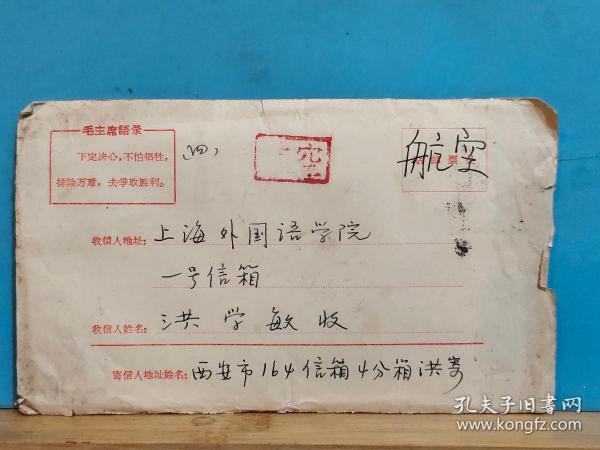 毛主席語录
下定决心，不怕牺牲，
排除万难，去爭取胜利。
(四)
空
航空
票
收信人地址：上海外国语学院
一号信箱
收信人姓名：洪学敏收
寄信人地址姓名：西安市164信箱4分箱洪寄
孔夫子旧书网
www.kongfz.com